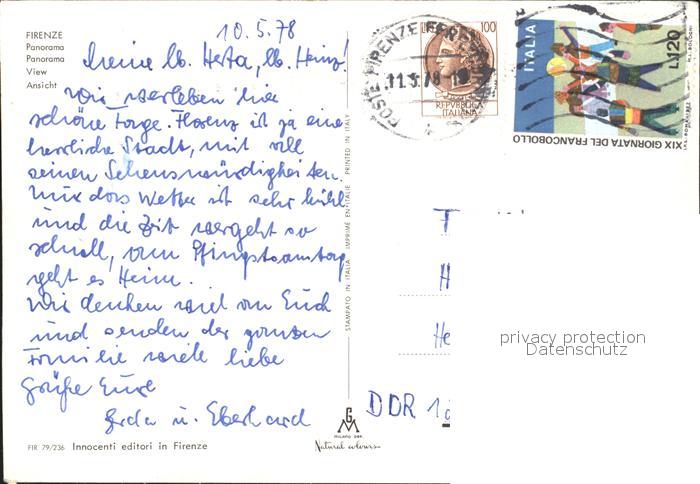 FIRENZE
Panorama
Panorama
View
Ansicht
10.5.78
Meine lb. Herta, lb. Heinz!
Wir verleben hier
schöne Tage. Florenz ist ja eine
herrliche Stadt, mit voll
seinen Sehenswürdigkeiten.
Nur das Wetter ist sehr kühl
und die Zeit vergeht so
schnell, am Pfingstsamstag
geht es Heim.
Wir denken viel an Euch
und senden der ganzen
Familie viele liebe
Grüße Eure
Gerda u. Eberhard
FIR 79/236 Innocenti editori in Firenze
STAMPATO IN ITALIA IMPRIME EN ITALIE PRINTED IN ITALY
MILANO
Natural colours
POSTE FIRENZE FERROVIA
11.5.78
100
REPVBBLICA
ITALIANA
ITALIA
L.120
XIX GIORNATA DEL FRANCOBOLLO
T
H
He
DDR
privacy protection
Datenschutz